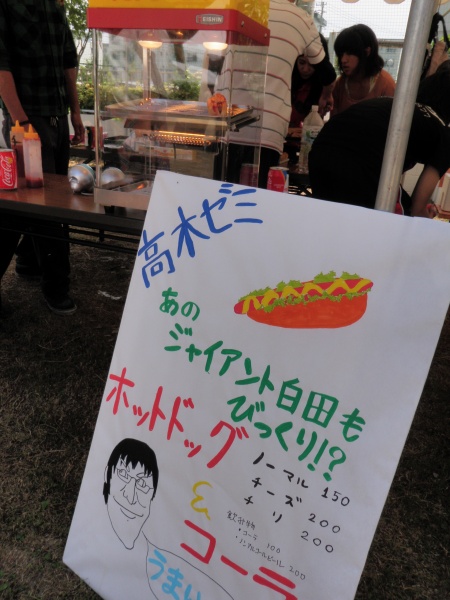 高木ゼミ
あの
ジャイアント白田も
びっくり!?
ホットドッグ
ノーマル 150
チーズ 200
チリ 200
&
コーラ
飲み物
・コーラ 100
・ノンアルコールビール 200
うまい
Coca-Cola